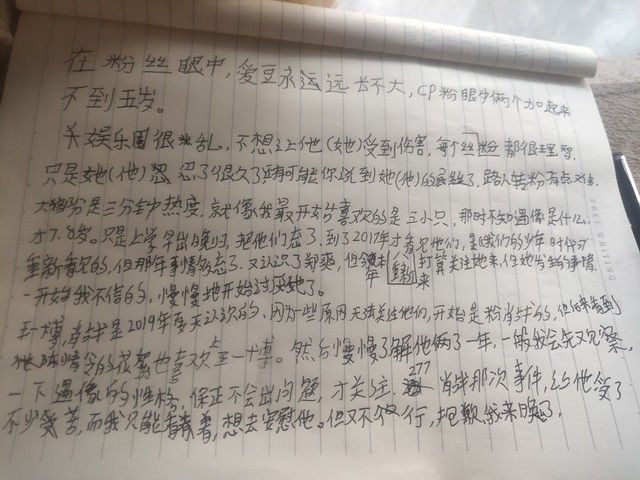 在粉丝眼中，爱豆永远远长不大，CP粉眼中俩个加起来
不到五岁。
关娱乐圈很乱，不想让他（她）受到伤害，每个丝粉都很理智，
只是她（他）忍了很久了有可能你说到她（他）的底丝了，路人转粉有点难
大部分是三分钟热度，就像我最开始喜欢的是三小只，那时不知偶像是什么，
才7.8岁。只是上学早出晚归，把他们忘了，到了2017年才看见他们，是我们的少年时代
重新看见的，但那年事情多忘了。又认识了郑爽，但打算关注她来，但她发生的事情
一开始我不信的，慢慢地开始讨厌她了。
王一博，肖战是2019年夏天认识的，因为一些原因无法关注他们，开始是粉肖战的，但后来看到
他陈情令的花絮也喜欢上王一博。然后慢慢了解他俩了一年，一般我会先观察，
一下偶像的性格，保正不会出问题，才关注。277肖战那次事件，让他受了
不少委苦，而我只能看着，想去安慰他。但又不行，抱歉，我来晚了，
PREE WRITING